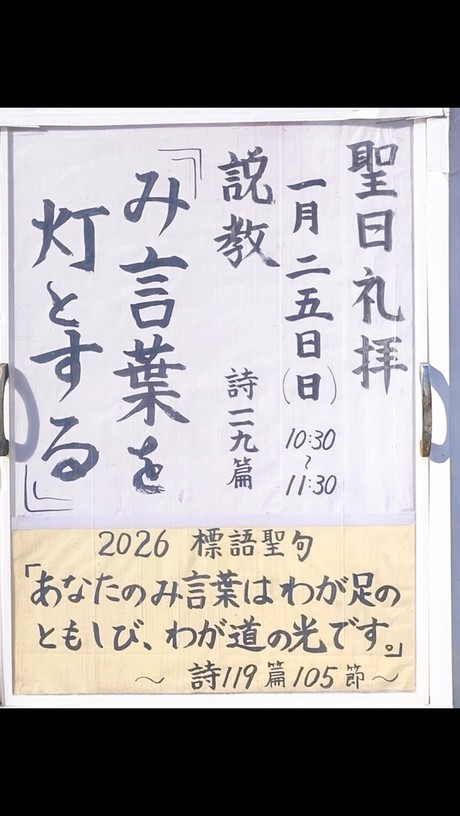 聖日礼拝
一月二五日(日) 10:30~11:30
説教 詩一一九篇
「み言葉を
灯とする」
2026 標語聖句
「あなたのみ言葉はわが足の
ともしび、わが道の光です。」
~ 詩119篇105節~